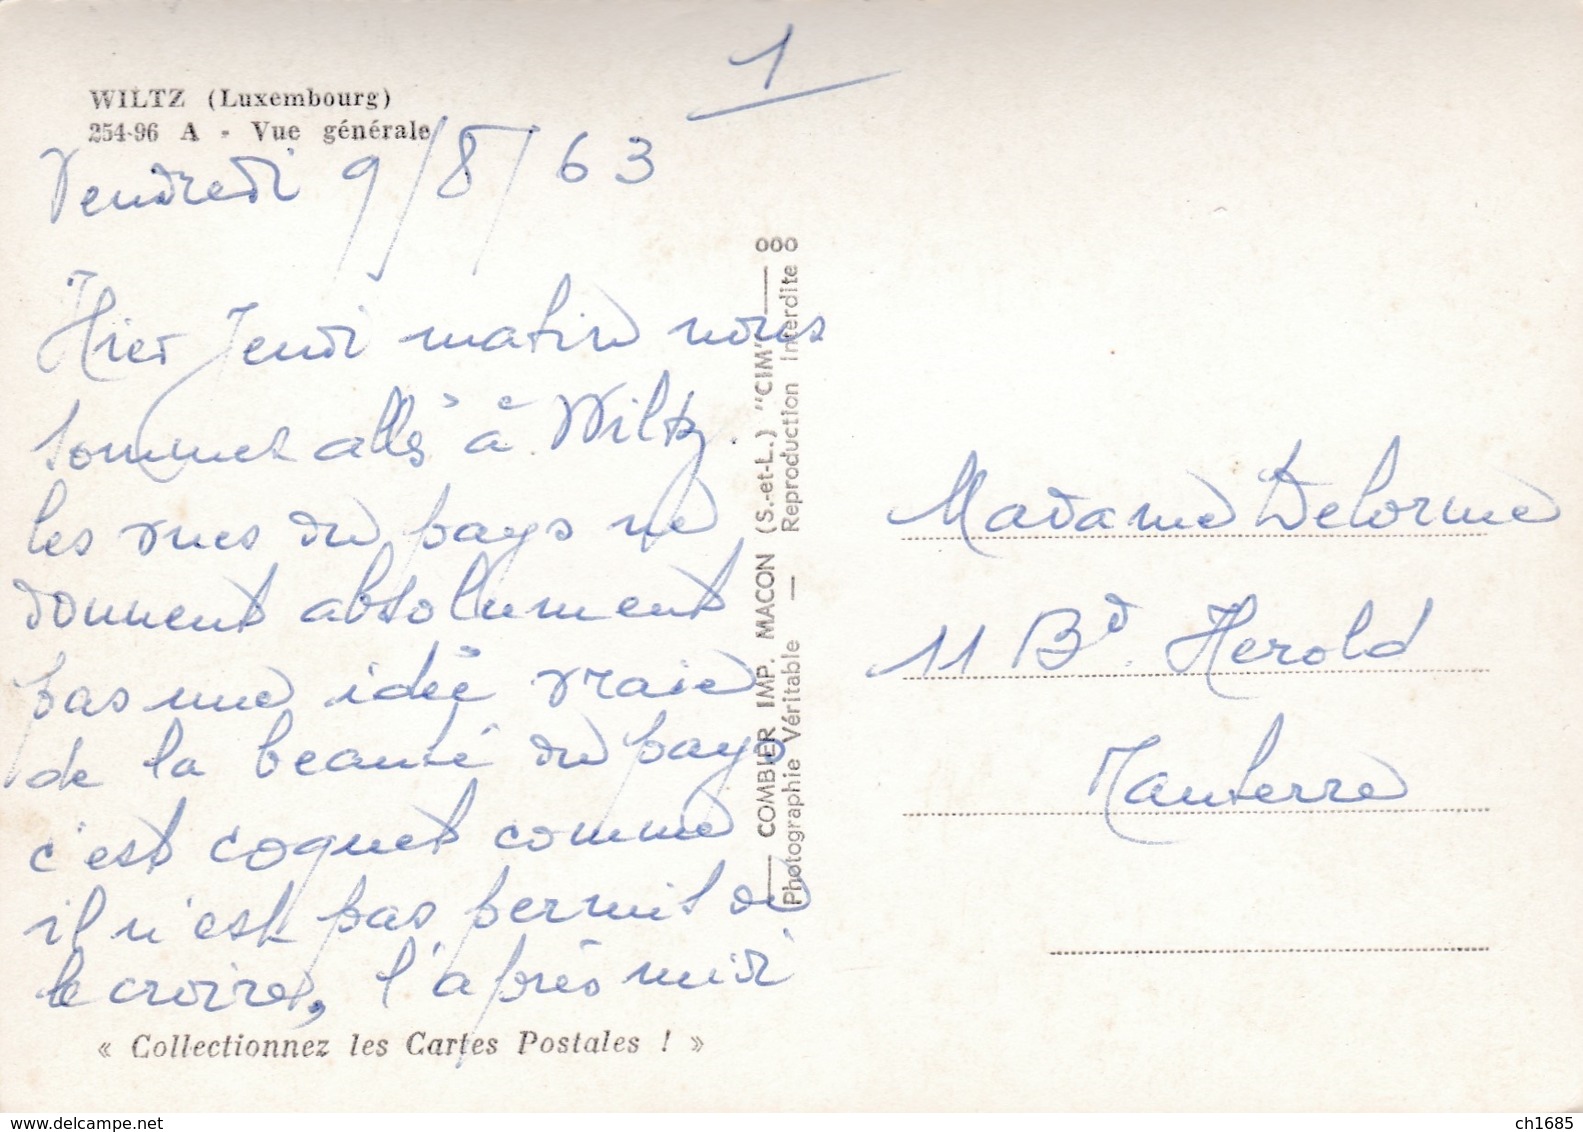 1
WILTZ (Luxembourg)
254-96 A - Vue générale
Vendredi 9/8/63
Hier Jeudi matin nous
sommes allés à Wiltz.
les vues du pays ne
donnent absolument
pas une idée vraie
de la beauté du pays
c'est coquet comme
il n'est pas permis de
le croire, l'après midi
« Collectionnez les Cartes Postales ! »
COMBIER IMP. MACON (S.-et-L.) "CIM" 000
Photographie Véritable — Reproduction Interdite 0
Madame Delorme
11 Bd. Herold
Nanterre
www.delcampe.net
ch1685